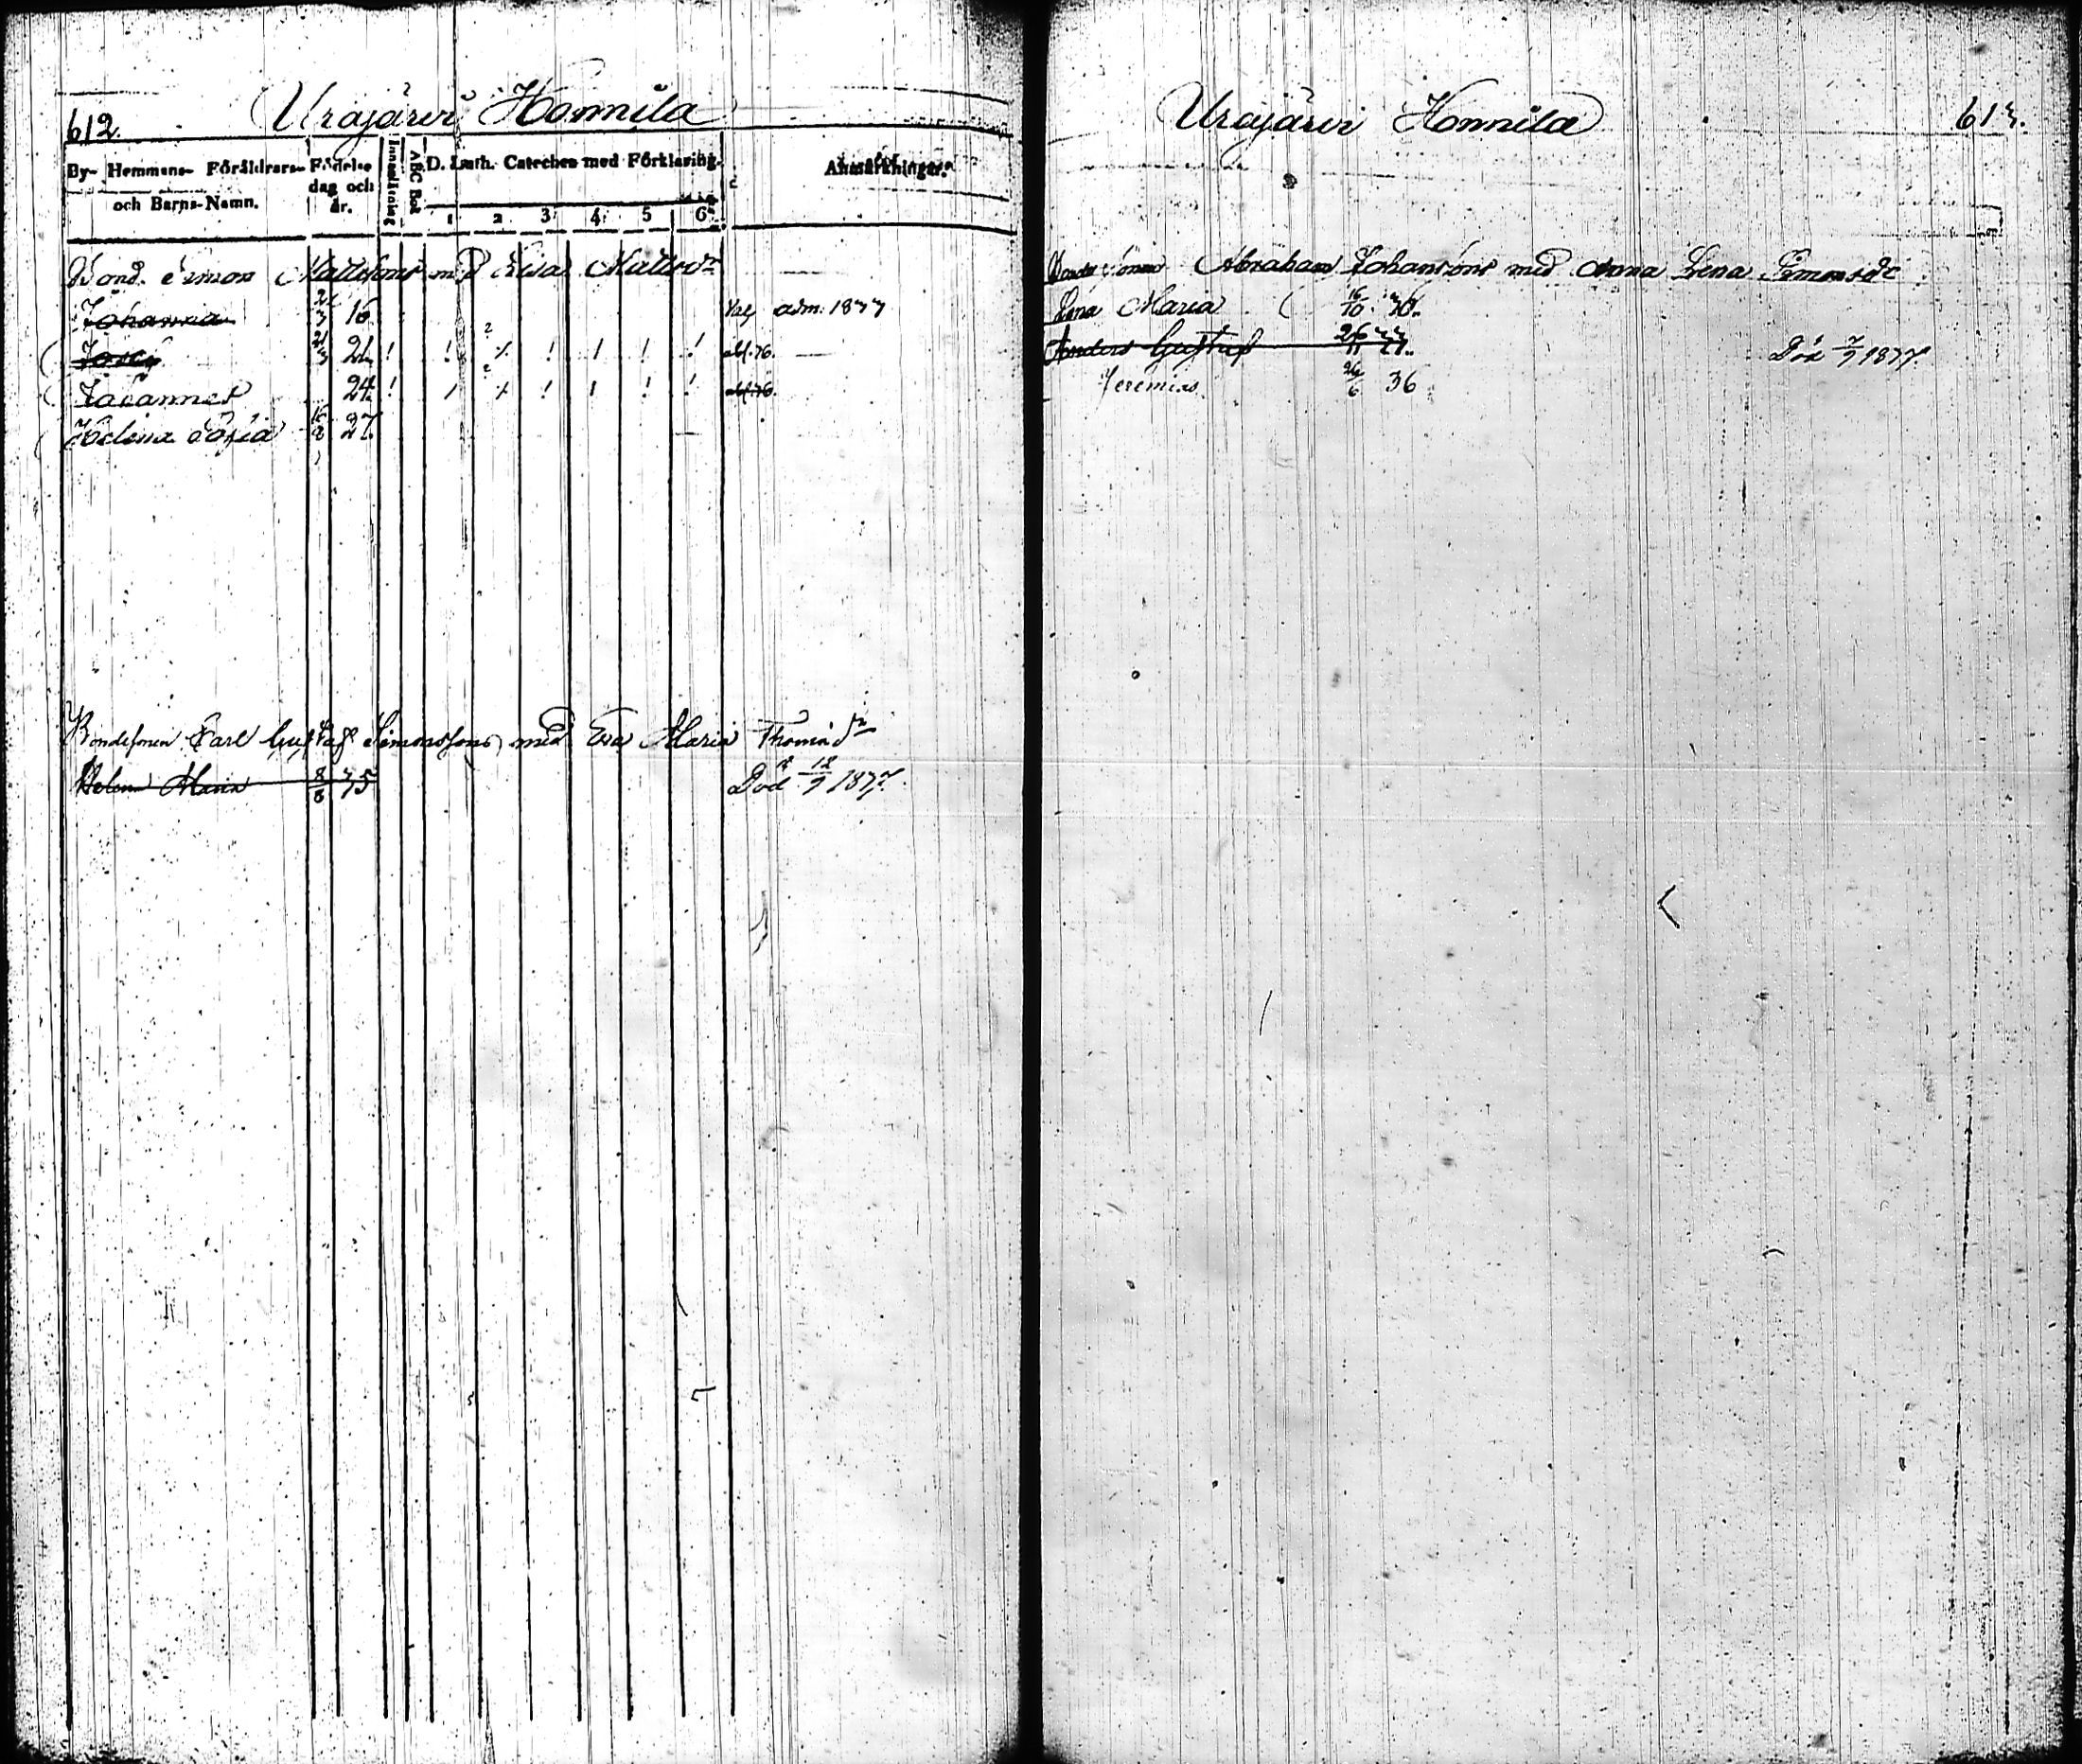 612. Urajärvi Honnila
By- Hemmans- Föräldrars- och Barns-Namn. Födelse dag och år. Innanläsning ABC Bok D. Luth. Cateches med Förklaring. 1 2 3 4 5 6 Anmärkningar.
Bond. Simon Mattssons m. Matts dr
Johanna 16 adm. 1877
Josef 21/3 21 ! ! ! ! ! abf. 76.
Johannes 24 ! ! ! ! ! abf. 76.
Helena Sofia 16/8 27
Bondesonen Carl Gustaf Simonssons med Eva Maria Thomæ dr
Helena Maria 8/8 75 Död 12/9 1877.
Urajärvi Honnila 613.
Bondesonen Abraham Johanssons med Anna Lena Simonsdr
Lena Maria 16/10 70.
Anders Gustaf 26/11 77. Död 7/9 1877.
Jeremias 26/6 36